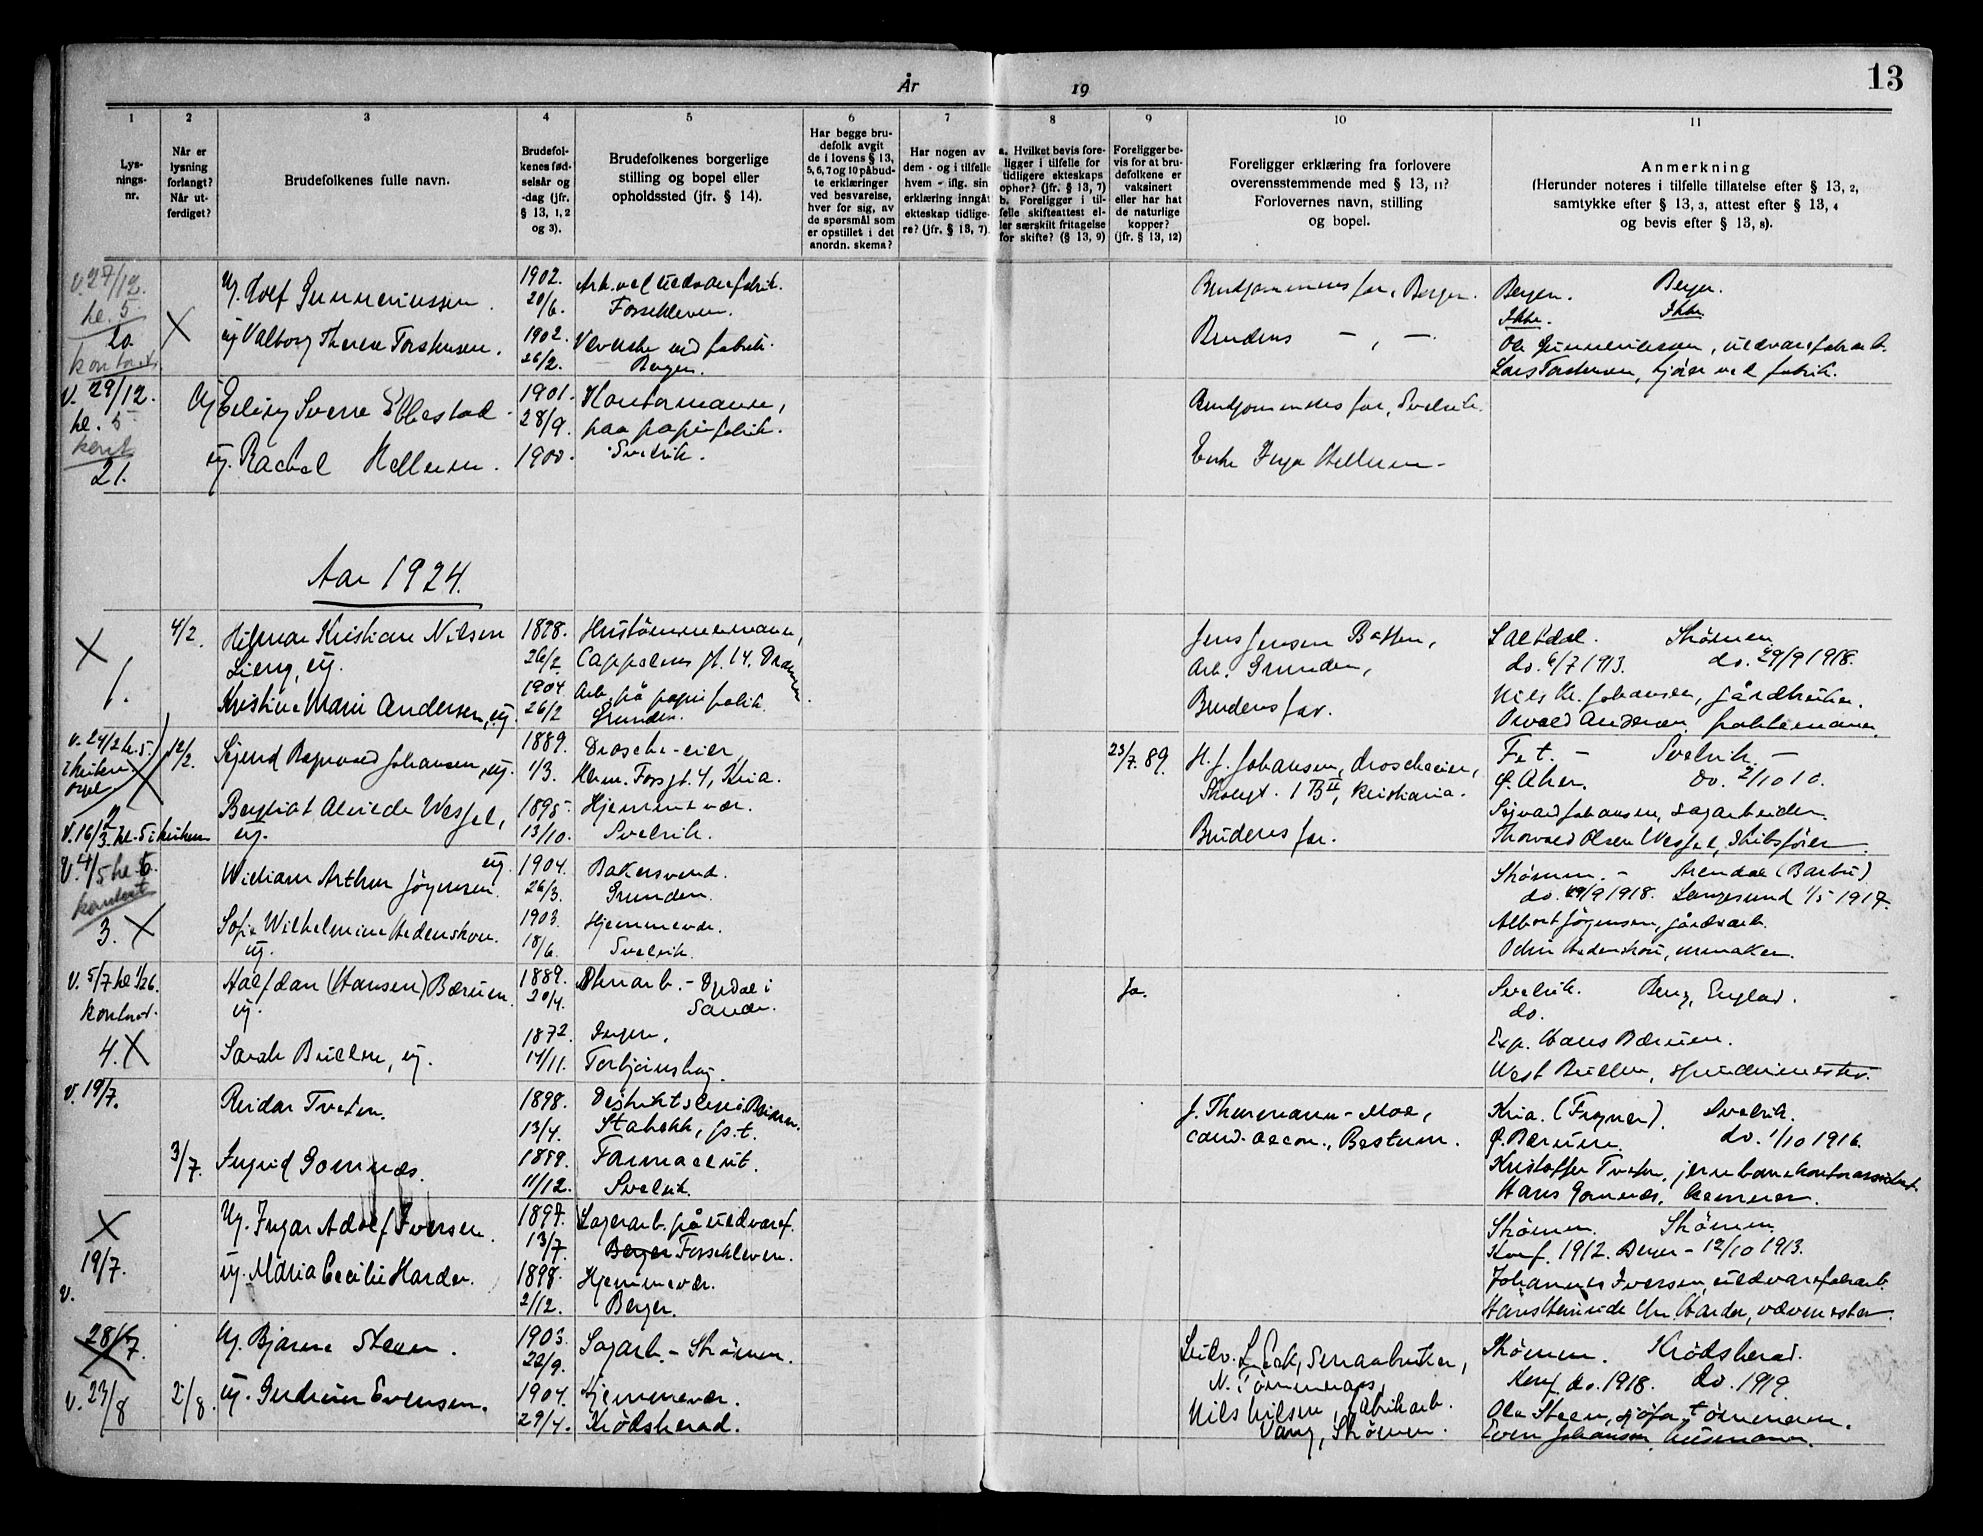 År 19
13
1 2 3 4 5 6 7 8 9 10 11
Lys-
nings-
nr.
Når er
lysning
forlangt?
Når ut-
ferdiget?
Brudefolkenes fulle navn.
Brudefol-
kenes fød-
selsår og
-dag (jfr.
§ 13, 1, 2
og 3).
Brudefolkenes borgerlige
stilling og bopel eller
opholdssted (jfr. § 14).
Har begge bru-
defolk avgit
de i lovens § 13,
5, 6, 7 og 10 påbud-
te erklæringer
ved besvarelse,
hver for sig, av
de spørsmål som
er opstillet i det
anordn. skema?
Har nogen av
dem - og i tilfelle
hvem - iflg. sin
erklæring inngåt
ekteskap tidlige-
re? (jfr. § 13, 7).
a. Hvilket bevis fore-
ligger i tilfelle for
tidligere ekteskaps
ophør? (jfr. § 13, 7)
b. Foreligger i til-
felle skifteattest el-
ler særskilt fritagelse
for skifte? (§ 13, 9)
Foreligger be-
vis for at bru-
defolkene er
vaksinert
eller har hat
de naturlige
kopper?
(jfr. § 13, 12)
Foreligger erklæring fra forlovere
overensstemmende med § 13, 11?
Forlovernes navn, stilling
og bopel.
Anmerkning
(Herunder noteres i tilfelle tillatelse efter § 13, 2,
samtykke efter § 13, 3, attest efter § 13, 4
og bevis efter § 13, 8).
V. 27/12.
kl. 5
20.
kontoret
X
Ug. Gunneriussen.
ug Valborg Therese Torstensen.
1902.
20/6.
1902.
26/2.
Arb. ved uldvarefabrik.
Fossekleven.
Væverske ved fabrik.
Berger.
Brudgommens far, Berger.
Brudens — , —
Berger. Berger.
Ikke. Ikke
Ole Gunneriussen, uldvarefabrarb.
Lars Torstensen, kjører ved fabrik.
V. 29/12.
kl. 5
kont
21.
Ug Erling Sverre Ellestad.
ug. Rachel Hellesen.
1901.
28/9.
1900.
Kontormann,
paa papirfabrik.
Svelvik.
Brudgommens far, Svelvik.
Enke Inga Hellesen
Aar 1924.
X
1.
4/2.
Hilmar Kristian Nilsen
Lieng, ug.
Kristine Marie Andersen, ug.
1898.
26/2
1904.
26/2
Hustømmermann,
Cappelens gt. 14. Drammen
Arb. på papirfabrik.
Grunden.
Jens Jensen
Arb. Grunden,
Brudens far.
Strømm
do. 6/7 1913. do. 29/9 1918.
Nils Kr. Johansen, gårdbruker.
Osvald Andersen, fabrikmann.
V. 24/2 kl. 5.
X
2
V. 16/3 kl. 5 i kirken
12/2.
Sigurd Ragnvald Johansen, ug.
Bergliot Alvilde Wessel,
ug.
1889.
1/3.
1895
13/10.
Drosche-eier
Herm. Foss gt. 4, Kria.
Hjemmevær.
Svelvik.
23/7. 89.
H. J. Johansen, droscheeier,
Kristiania.
Brudens far.
Fet. — Svelvik —
Ø. Aker. do. 2/10 10.
Sigvard Johansen, sagarbeider.
Thorvald Olsen Wessel, Skibsfører.
V. 4/5 kl. 6.
kontoret
3. X
William Arthur Jörgensen. ug
Sofie Wilhelmine Hedenskou.
ug.
1904.
26/3.
1903.
18/6.
Bakersvend.
Grunden.
Hjemmevær.
Svelvik.
Strømm. — Arendal (Barbu)
do. 29/9 1918. Langesund 1/5 1917.
Albert Jörgensen, gårdsarb.
Odin Hedenskou, urmaker.
V. 5/7 kl 1/26.
kontoret.
4. X
Halfdan (Hansen) Bærum.
ug.
Sarah Buckler, ug.
1889.
20/4.
1872
14/11.
Stenarb. - Opdal i
Sande.
Ingen,
Torbjørnskog.
Ja.
Svelvik. Bury, England.
do.
Exp. Hans Bærum.
West Buckler, spinnemester.
V. 19/7.
3/7.
Reidar Tveten.
Ingrid Gomnæs.
1898.
13/4.
1899.
11/12.
Stabekk, p.t.
Farmaceut.
Svelvik.
J. Thurmann-Moe,
cand. oecon., Bestum.
Kria. (Frogner). Svelvik.
Ø. Bærum. do. 1/10 1916.
Kristoffer Tveten, jernbanekontorassistent
Hans Gomnæs, kemner.
X
19/7.
V.
Ug. Ingar Adolf Iversen.
ug. Maria Cecilie Harder.
1897.
13/7.
1898.
2/12.
Lagerarb. på uldvaref.
Berger Fossekleven.
Hjemmevær.
Berger.
Strømm. Strømm.
Konf. 1912. Berger - 12/10 1913.
Johannes Iversen, uldvarefabrarb.
Harder, vævemester.
28/7.
X
V. 23/8
2/8.
Ug. Bjarne Steen.
ug. Gudrun Evensen.
1903.
22/9.
1904.
29/4.
Sagarb. - Strømm.
Hjemmevær.
Krødsherad.
Ludv. L. Eek, smaabruker,
N. Tømmeraas,
Nils Nilsen, fabrikarb.
Vang, Strømm.
Strømm. Krødsherad.
Konf. do. 1918. do. 1919.
Ole Steen, sjøf. tømmerm.
Even Johansen, husmann.